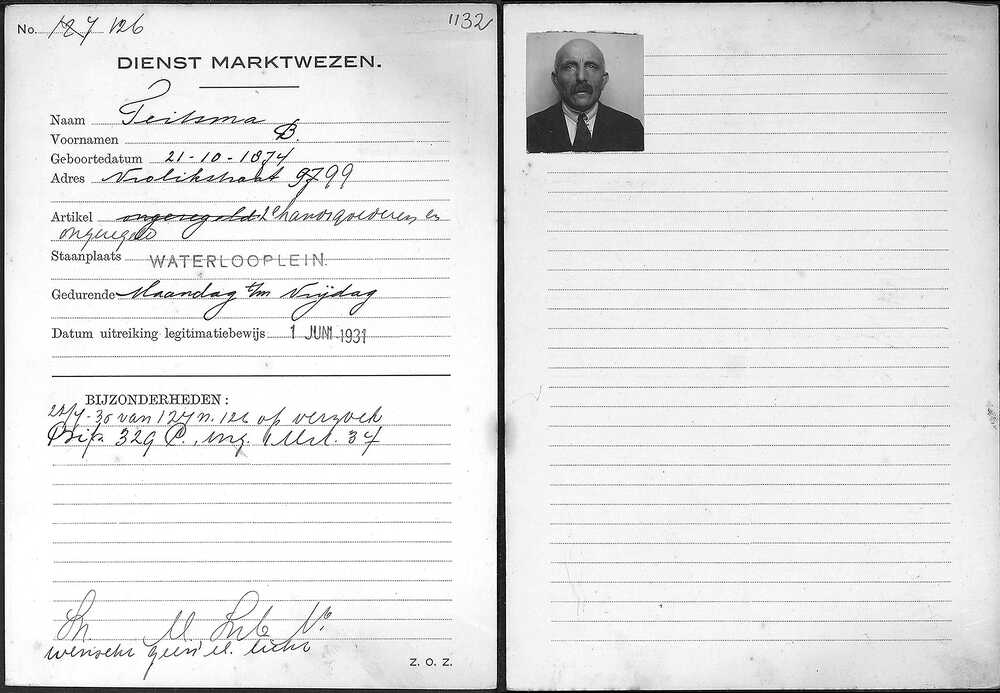 No. 127 126
1132
DIENST MARKTWEZEN.
Naam Teitsma
Voornamen B.
Geboortedatum 21-10-1874
Adres Vrolikstraat 97 99
Artikel ongeregeld 2e handsgoederen en
ongeregeld
Staanplaats WATERLOOPLEIN.
Gedurende Maandag t/m Vrijdag
Datum uitreiking legitimatiebewijs 1 JUNI 1931
BIJZONDERHEDEN:
30 van 127 n. 126 op verzoek
329 P., ing. 1 Mrt. 37
wenscht geen el. licht
Z. O. Z.